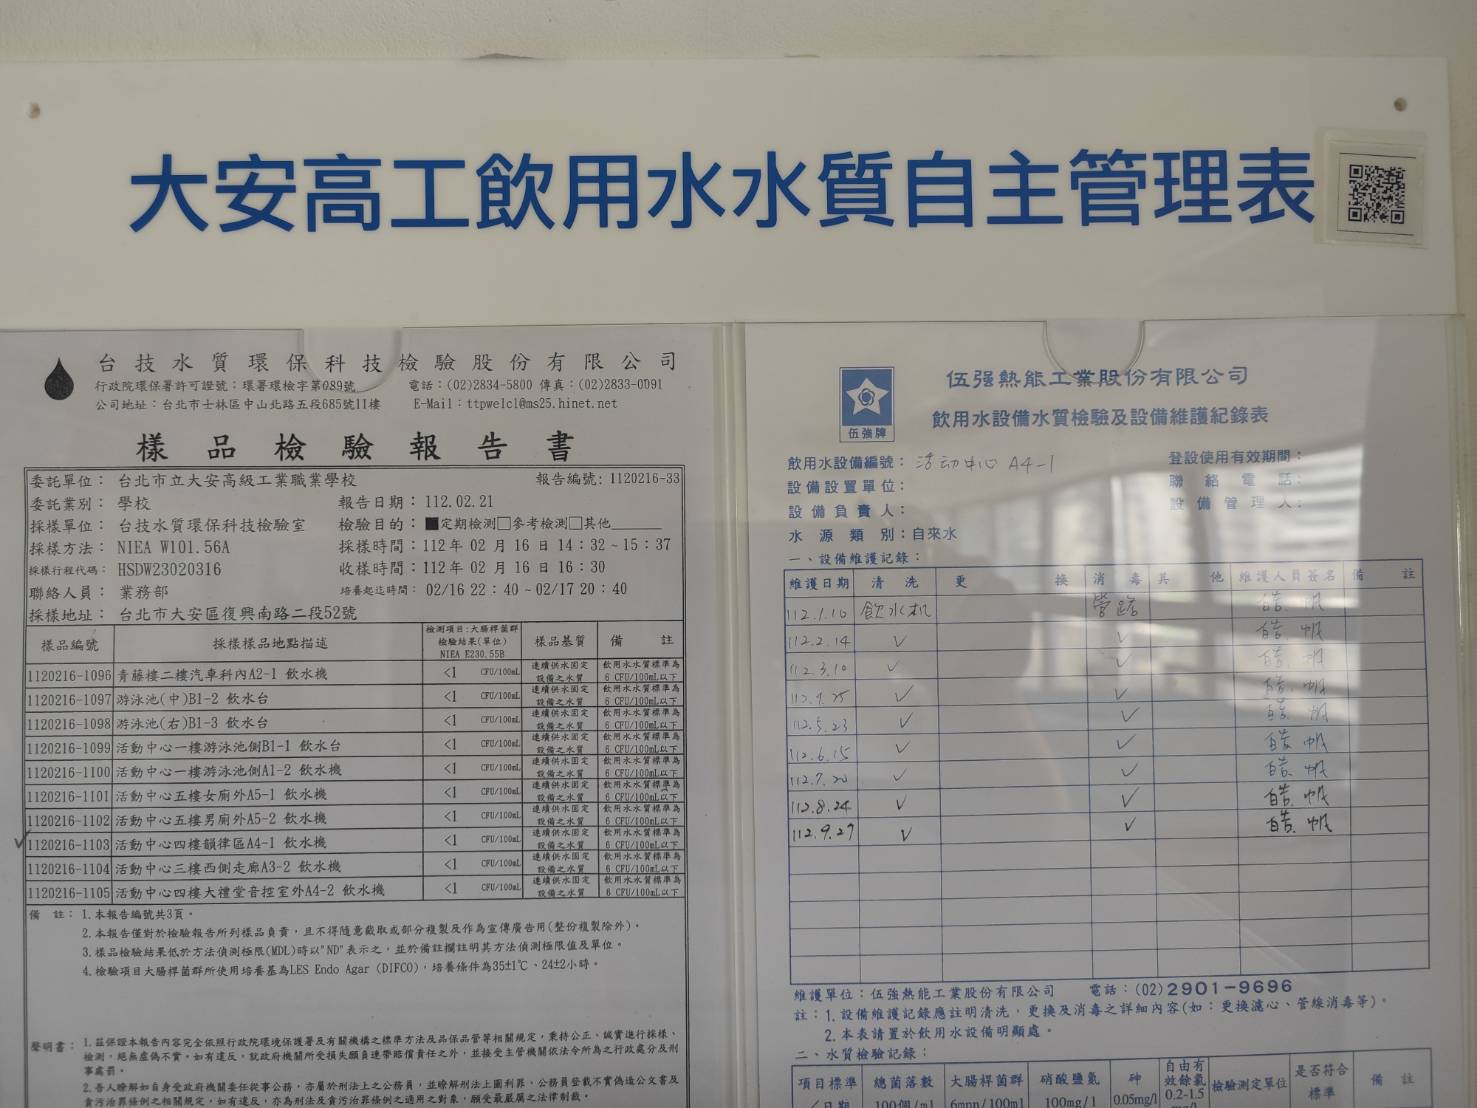 大安高工飲用水水質自主管理表
台技水質環保科技檢驗股份有限公司
行政院環保署許可證號：環署環檢字第089號 電話：(02)2834-5800 傳真：(02)2833-0091
公司地址：台北市士林區中山北路五段685號11樓 E-Mail：ttpwelcl@ms25.hinet.net
樣品檢驗報告書
委託單位： 台北市立大安高級工業職業學校 報告編號: 1120216-33
委託業別： 學校 報告日期：112.02.21
採樣單位： 台技水質環保科技檢驗室 檢驗目的：■定期檢測□參考檢測□其他
採樣方法： NIEA W101.56A 採樣時間：112 年 02 月 16 日 14：32～15：37
採樣行程代碼： HSDW23020316 收樣時間：112 年 02 月 16 日 16：30
聯絡人員： 業務部 培養起迄時間： 02/16 22：40～02/17 20：40
採樣地址： 台北市大安區復興南路二段52號
樣品編號 採樣樣品地點描述 檢測項目:大腸桿菌群 檢驗結果(單位) NIEA E230.55B 樣品基質 備 註
1120216-1096 青藤樓二樓汽車科內A2-1 飲水機 <1 CFU/100mL 連續供水固定設備之水質 飲用水水質標準為6 CFU/100mL以下
1120216-1097 游泳池(中)B1-2 飲水台 <1 CFU/100mL 連續供水固定設備之水質 飲用水水質標準為6 CFU/100mL以下
1120216-1098 游泳池(右)B1-3 飲水台 <1 CFU/100mL 連續供水固定設備之水質 飲用水水質標準為6 CFU/100mL以下
1120216-1099 活動中心一樓游泳池側B1-1 飲水台 <1 CFU/100mL 連續供水固定設備之水質 飲用水水質標準為6 CFU/100mL以下
1120216-1100 活動中心一樓游泳池側A1-2 飲水機 <1 CFU/100mL 連續供水固定設備之水質 飲用水水質標準為6 CFU/100mL以下
1120216-1101 活動中心五樓女廁外A5-1 飲水機 <1 CFU/100mL 連續供水固定設備之水質 飲用水水質標準為6 CFU/100mL以下
1120216-1102 活動中心五樓男廁外A5-2 飲水機 <1 CFU/100mL 連續供水固定設備之水質 飲用水水質標準為6 CFU/100mL以下
✓1120216-1103 活動中心四樓韻律區A4-1 飲水機 <1 CFU/100mL 連續供水固定設備之水質 飲用水水質標準為6 CFU/100mL以下
1120216-1104 活動中心三樓西側走廊A3-2 飲水機 <1 CFU/100mL 連續供水固定設備之水質 飲用水水質標準為6 CFU/100mL以下
1120216-1105 活動中心四樓大禮堂音控室外A4-2 飲水機 <1 CFU/100mL 連續供水固定設備之水質 飲用水水質標準為6 CFU/100mL以下
備 註：1.本報告編號共3頁。
2.本報告僅對於檢驗報告所列樣品負責，且不得隨意截取或部分複製及作為宣傳廣告用(整份複製除外)。
3.樣品檢驗結果低於方法偵測極限(MDL)時以"ND"表示之，並於備註欄註明其方法偵測極限值及單位。
4.檢驗項目大腸桿菌群所使用培養基為LES Endo Agar (DIFCO)，培養條件為35±1℃、24±2小時。
聲明書：1.茲保證本報告內容完全依照行政院環境保護署及有關機構之標準方法及品保品管等相關規定，秉持公正、誠實進行採樣、
檢測，絕無虛偽不實，如有違反，就政府機關所受損失願負連帶賠償責任之外，並接受主管機關依法令所為之行政處分及刑
事處罰。
2.吾人瞭解如自身受政府機關委任從事公務，亦屬於刑法上之公務員，並瞭解刑法上圖利罪、公務員登載不實偽造公文書及
貪污治罪條例之相關規定，如有違反，亦為刑法及貪污治罪條例之適用之對象，願受最嚴厲之法律制裁。
伍強牌
伍强熱能工業股份有限公司
飲用水設備水質檢驗及設備維護紀錄表
飲用水設備編號：活动中心 A4-1 登設使用有效期間：
設備設置單位： 聯絡電話：
設備負責人： 設備管理人：
水源類別：自來水
一、設備維護記錄：
維護日期 清洗 更換 消毒 其他 維護人員簽名 備註
112.1.10 飲水机 管路 皓帆
112.2.14 ✓ ✓ 皓帆
112.3.10 ✓ ✓ 皓帆
✓ ✓ 皓帆
112.5.23 ✓ ✓ 皓帆
112.6.15 ✓ ✓ 皓帆
112.7.20 ✓ ✓ 皓帆
112.8.24 ✓ ✓ 皓帆
112.9.27 ✓ ✓ 皓帆
維護單位：伍強熱能工業股份有限公司 電話：(02)2901-9696
註：1.設備維護記錄應註明清洗，更換及消毒之詳細內容(如：更換濾心、管線消毒等)。
2.本表請置於飲用水設備明顯處。
二、水質檢驗記錄：
項目標準 總菌落數 大腸桿菌群 硝酸鹽氮 砷 自由有效餘氯 檢驗測定單位 是否符合標準 備註
日期 100個/ml 6mpn/100ml 100mg/1 0.05mg/l 0.2-1.5